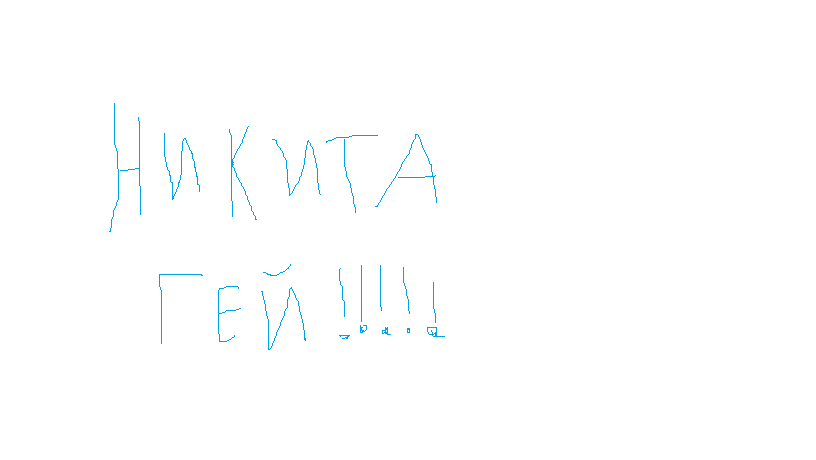 НИКИТА
ГЕЙ!!!!!